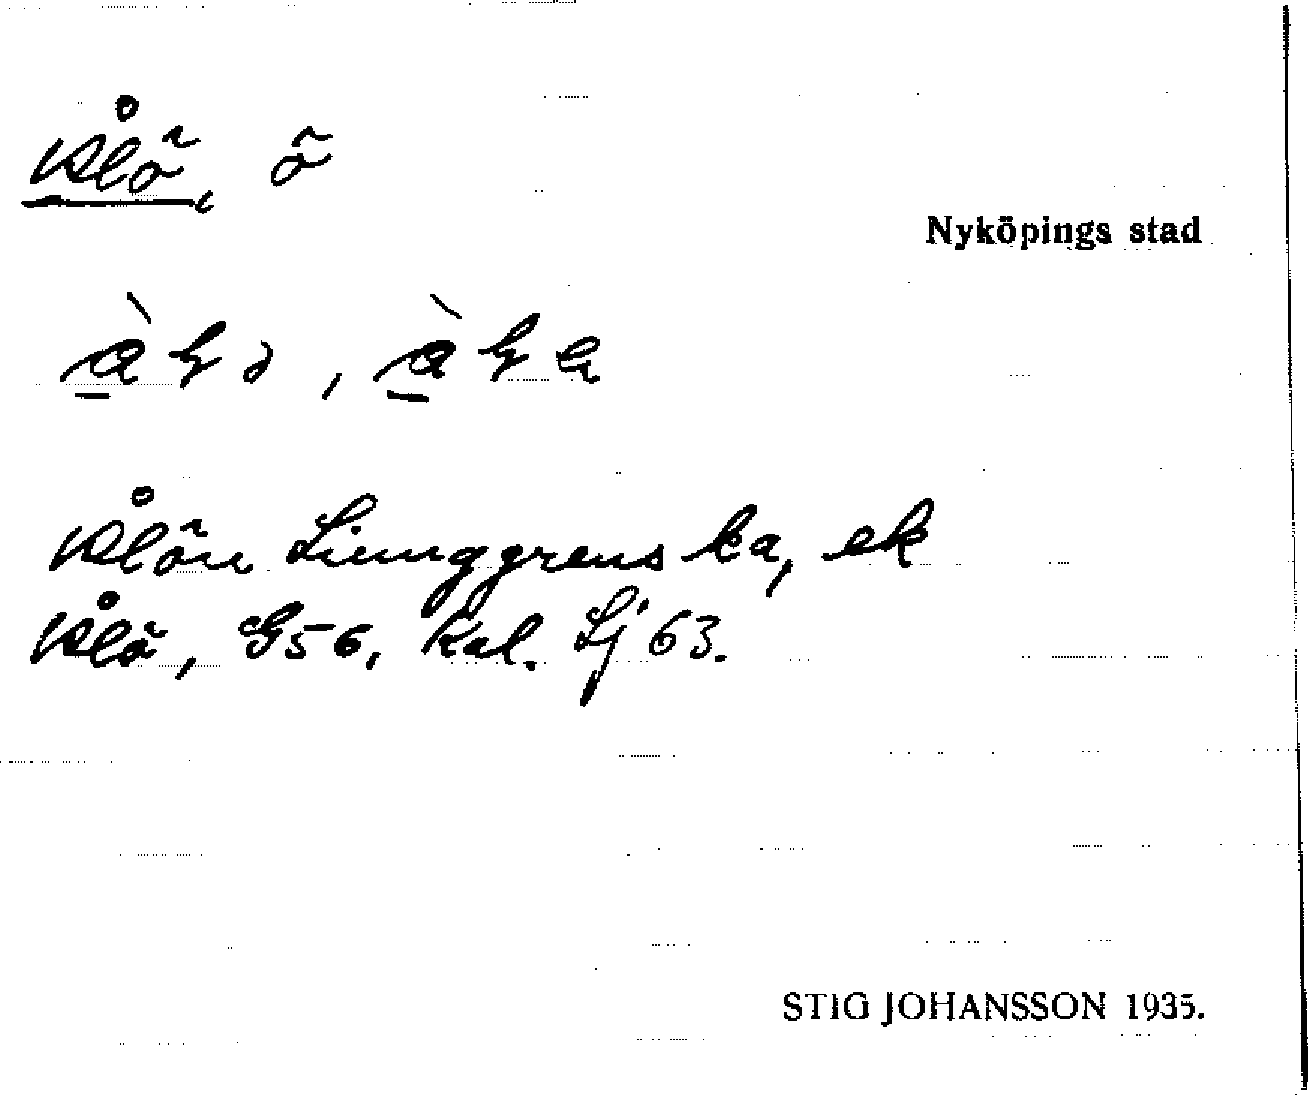 Ålö, ö
Nyköpings stad
Ålön Ljunggrens ka, ek
Ålö, G56, kal. Lj 63.
STIG JOHANSSON 1935.